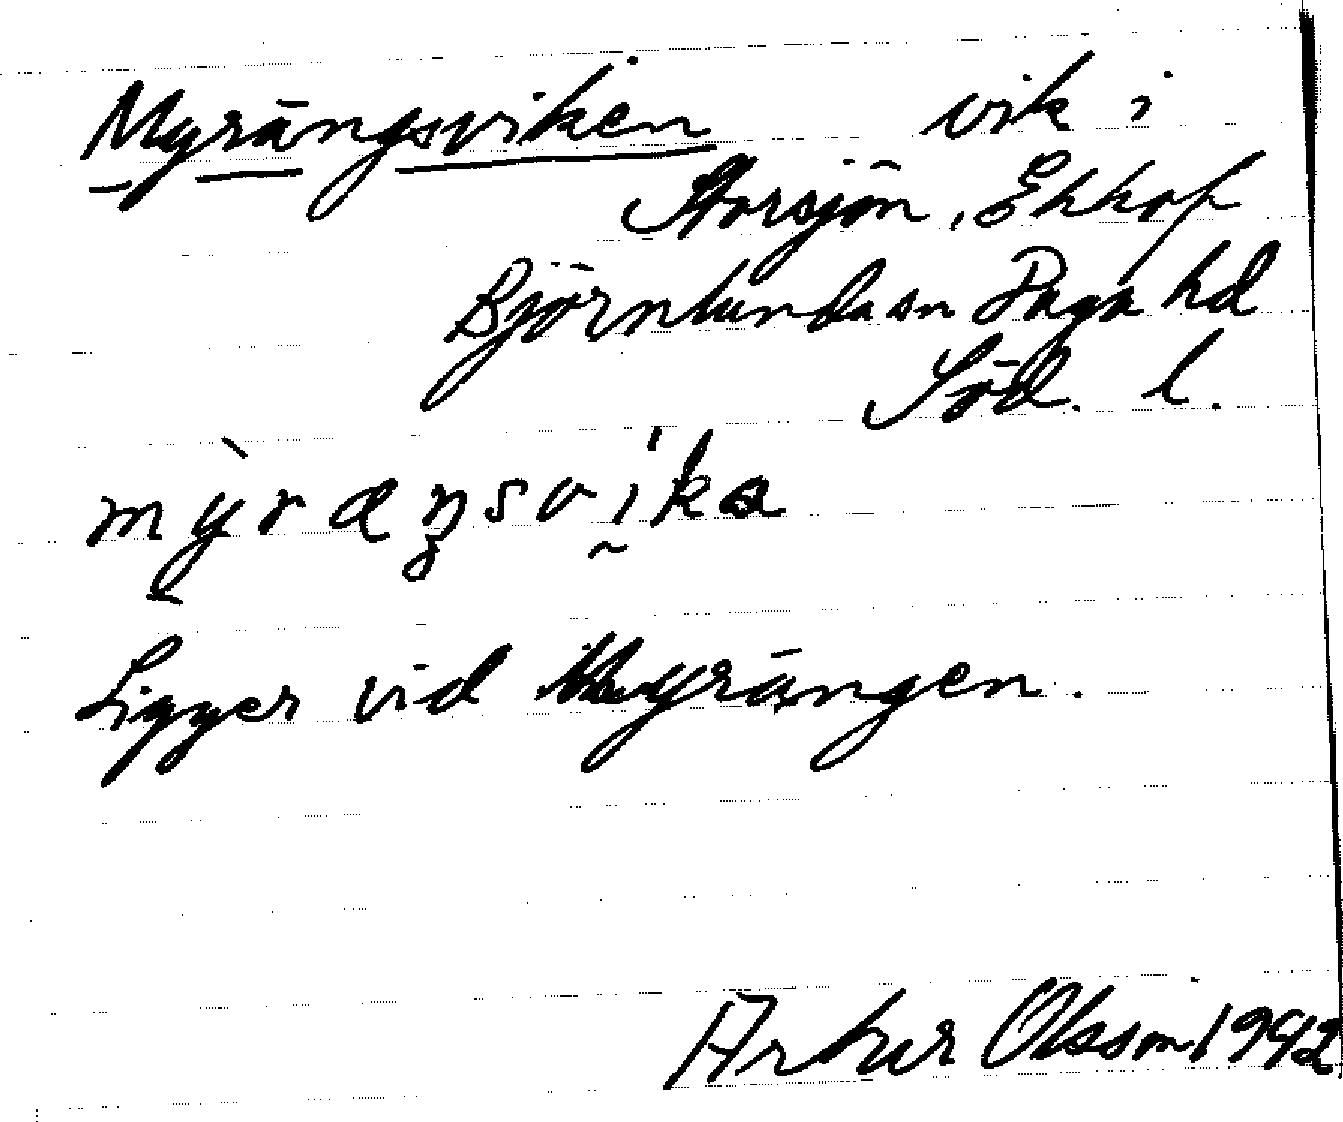 Myrängsviken vik i
Storsjön, Ekhof
Björnlunda sn Daga hd
Söd. l.
mỳræŋsvḭ'ka
Ligger vid Myrängen.
Artur Olsson 1942